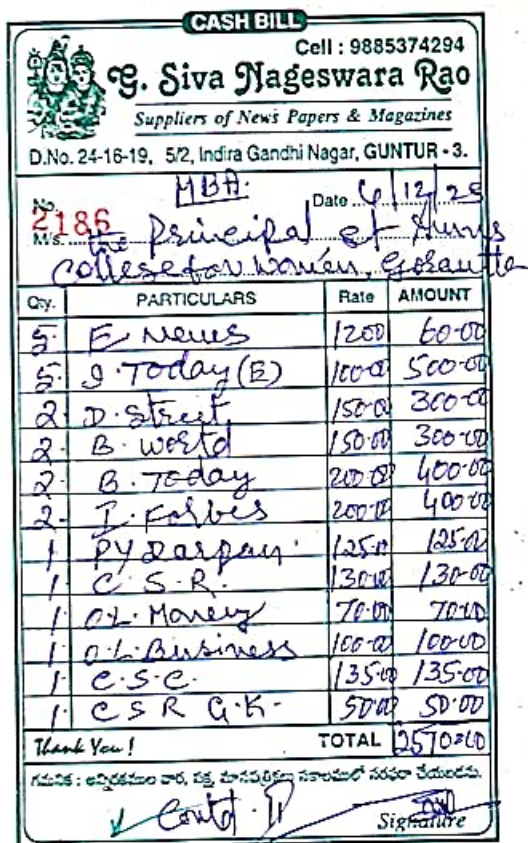 CASH BILL
Cell : 9885374294
G. Siva Nageswara Rao
Suppliers of News Papers & Magazines
D.No. 24-16-19, 5/2, Indira Gandhi Nagar, GUNTUR - 3.
MBA.
No. 2186 Date 6/12/25
M/s. the Principal of
College for Women,
Qty. PARTICULARS Rate AMOUNT
5. E News 1200 60-00
5. I. Today (E) 100-00 500-00
2. D. Street 150-00 300-00
2. B. World 150-00 300-00
2. B. Today 200-00 400-00
2. I. Forbes 200-00 400-00
1 PY Darpan. 125-00 125-00
1 C. S. R. 130-00 130-00
1. O.L. Money 70-00 70-00
1. O.L. Business 100-00 100-00
1. C.S.C. 135-00 135-00
1. C S R G.K. 50-00 50-00
Thank You ! TOTAL 2570=00
గమనిక : అన్నిరకముల వార, పక్ష, మాసపత్రికలు సకాలములో సరఫరా చేయబడును.
Contd. II
Signature